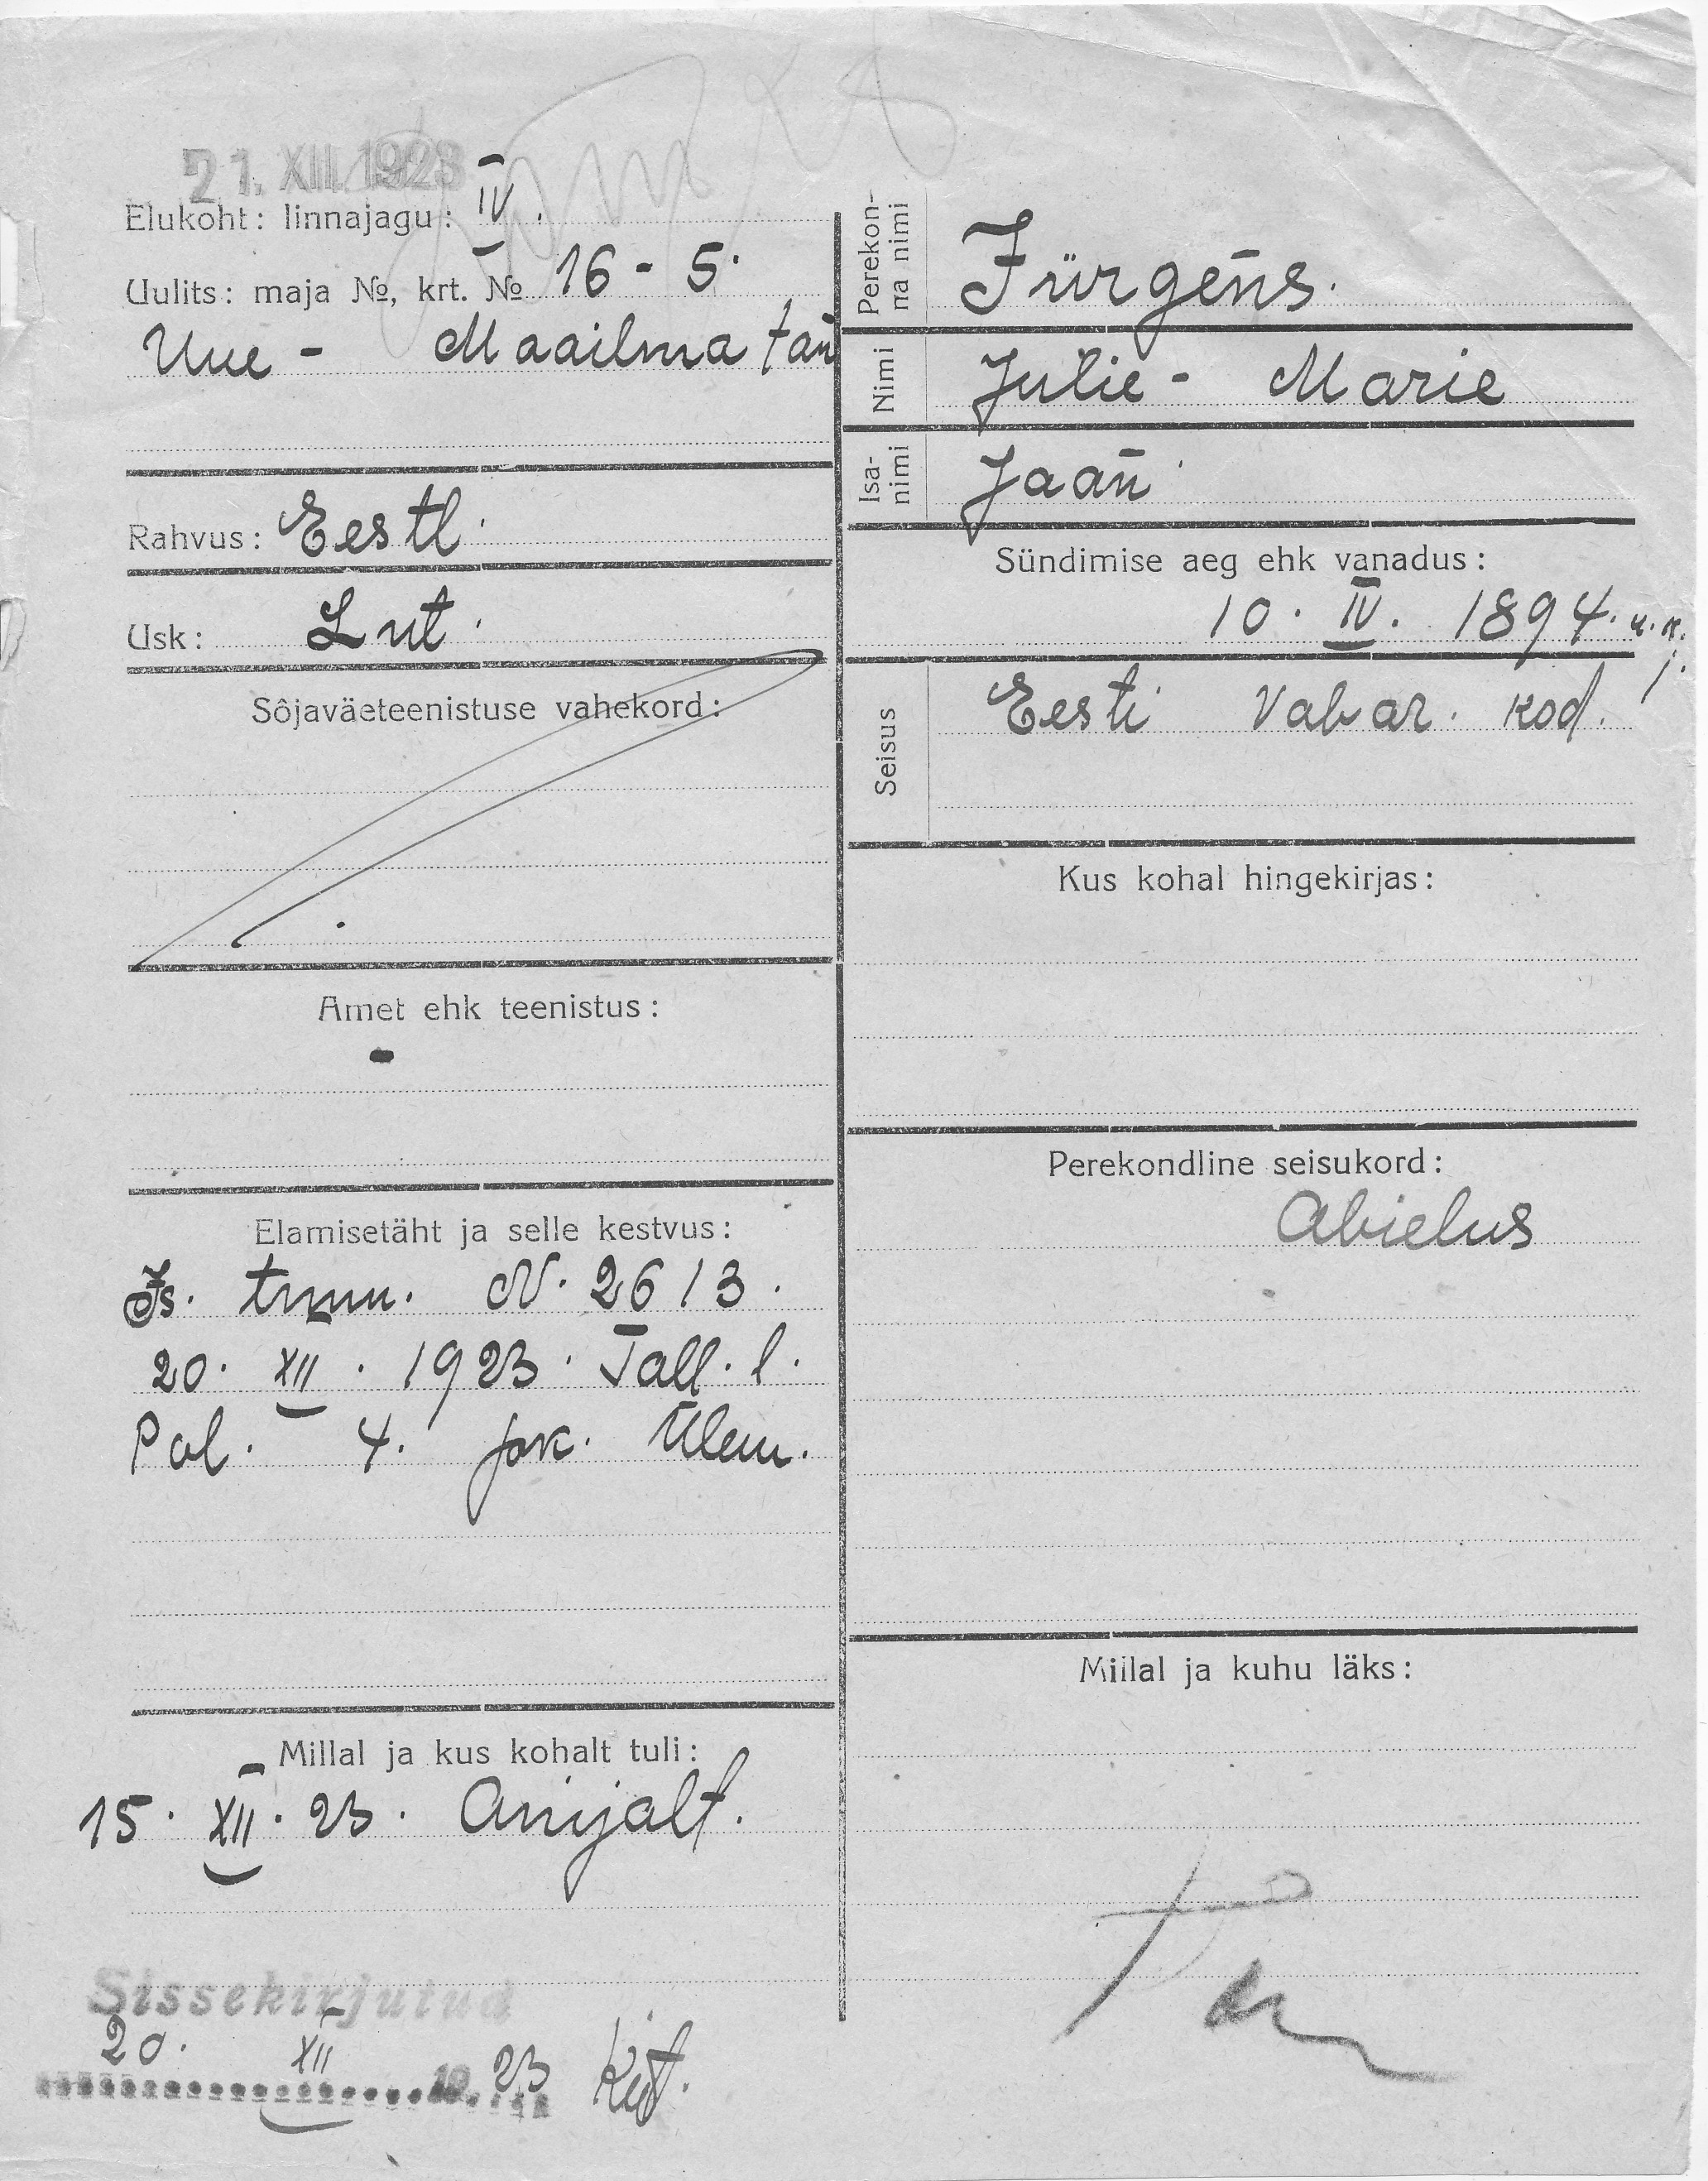 21. XII. 1923
Elukoht: linnajagu: IV.
Uulits: maja №, krt. № 16 - 5.
Uue - Maailma tän
Rahvus: Eestl.
Usk: Lut.
Sõjaväeteenistuse vahekord:
Amet ehk teenistus:
-
Elamisetäht ja selle kestvus:
Is. tunn. N. 2613.
20. XII. 1923. Tall. l.
Pol. 4. jsk. Ülem.
Millal ja kus kohalt tuli:
15. XII. 23. Anijalt.
Sissekirjutud
20. XII 19. 23
Perekon-
na nimi
Jürgens.
Nimi Julie - Marie
Isa-
nimi
Jaan
Sündimise aeg ehk vanadus:
10. IV. 1894. u. k.
Seisus Eesti Vabar. kod.
Kus kohal hingekirjas:
Perekondline seisukord:
Abielus
Millal ja kuhu läks: